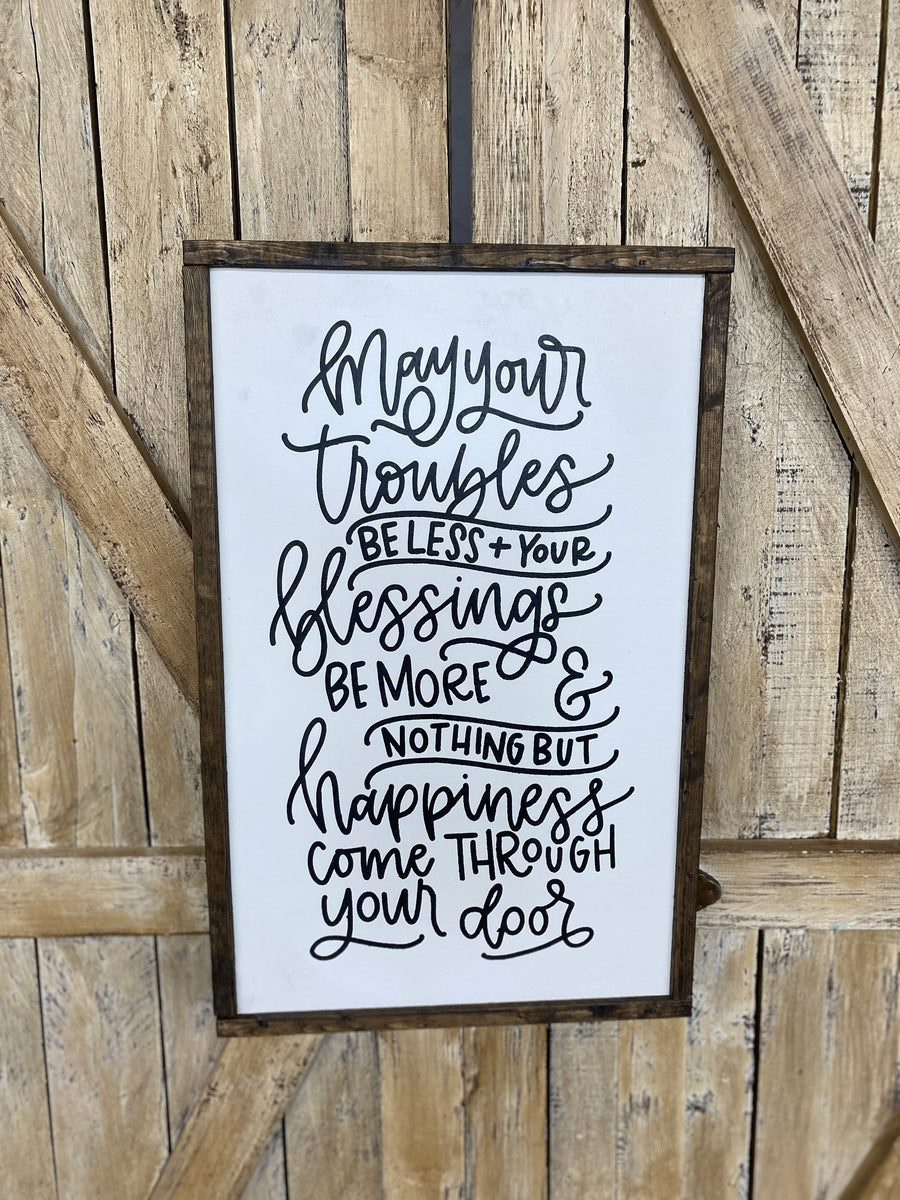 May your
troubles
BE LESS + YOUR
blessings
BE MORE &
NOTHING BUT
happiness
come THROUGH
your door